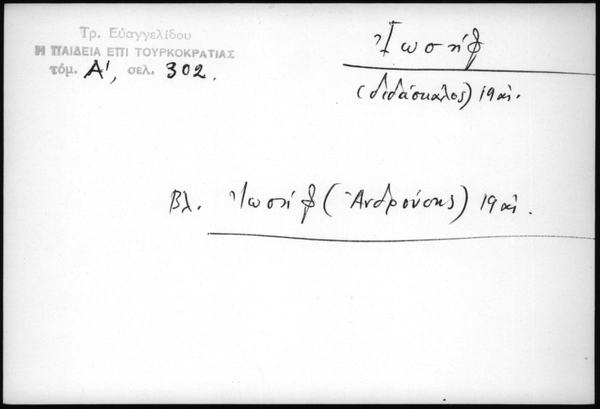 Τρ. Εὐαγγελίδου
Η ΠΑΙΔΕΙΑ ΕΠΙ ΤΟΥΡΚΟΚΡΑΤΙΑΣ
τόμ. Α', σελ. 302.
Ἰωσήφ
(διδάσκαλος) 19 αἰ.
Βλ. Ἰωσήφ (Ἀνδρούσης) 19 αἰ.